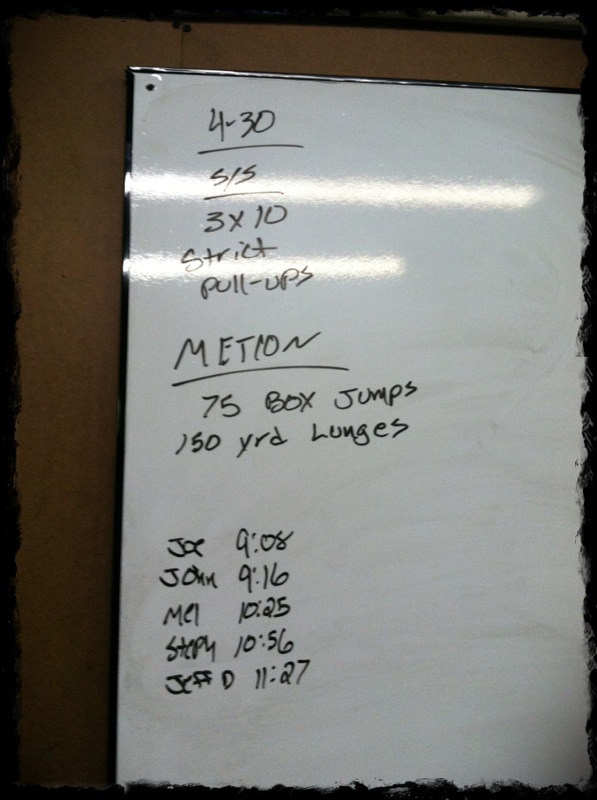 4-30
S/S
3 X 10
Strict
Pull-ups
METCON
75 BOX Jumps
150 yrd Lunges
Joe 9:08
John 9:16
Mel 10:25
Steph 10:56
Jeff D 11:27